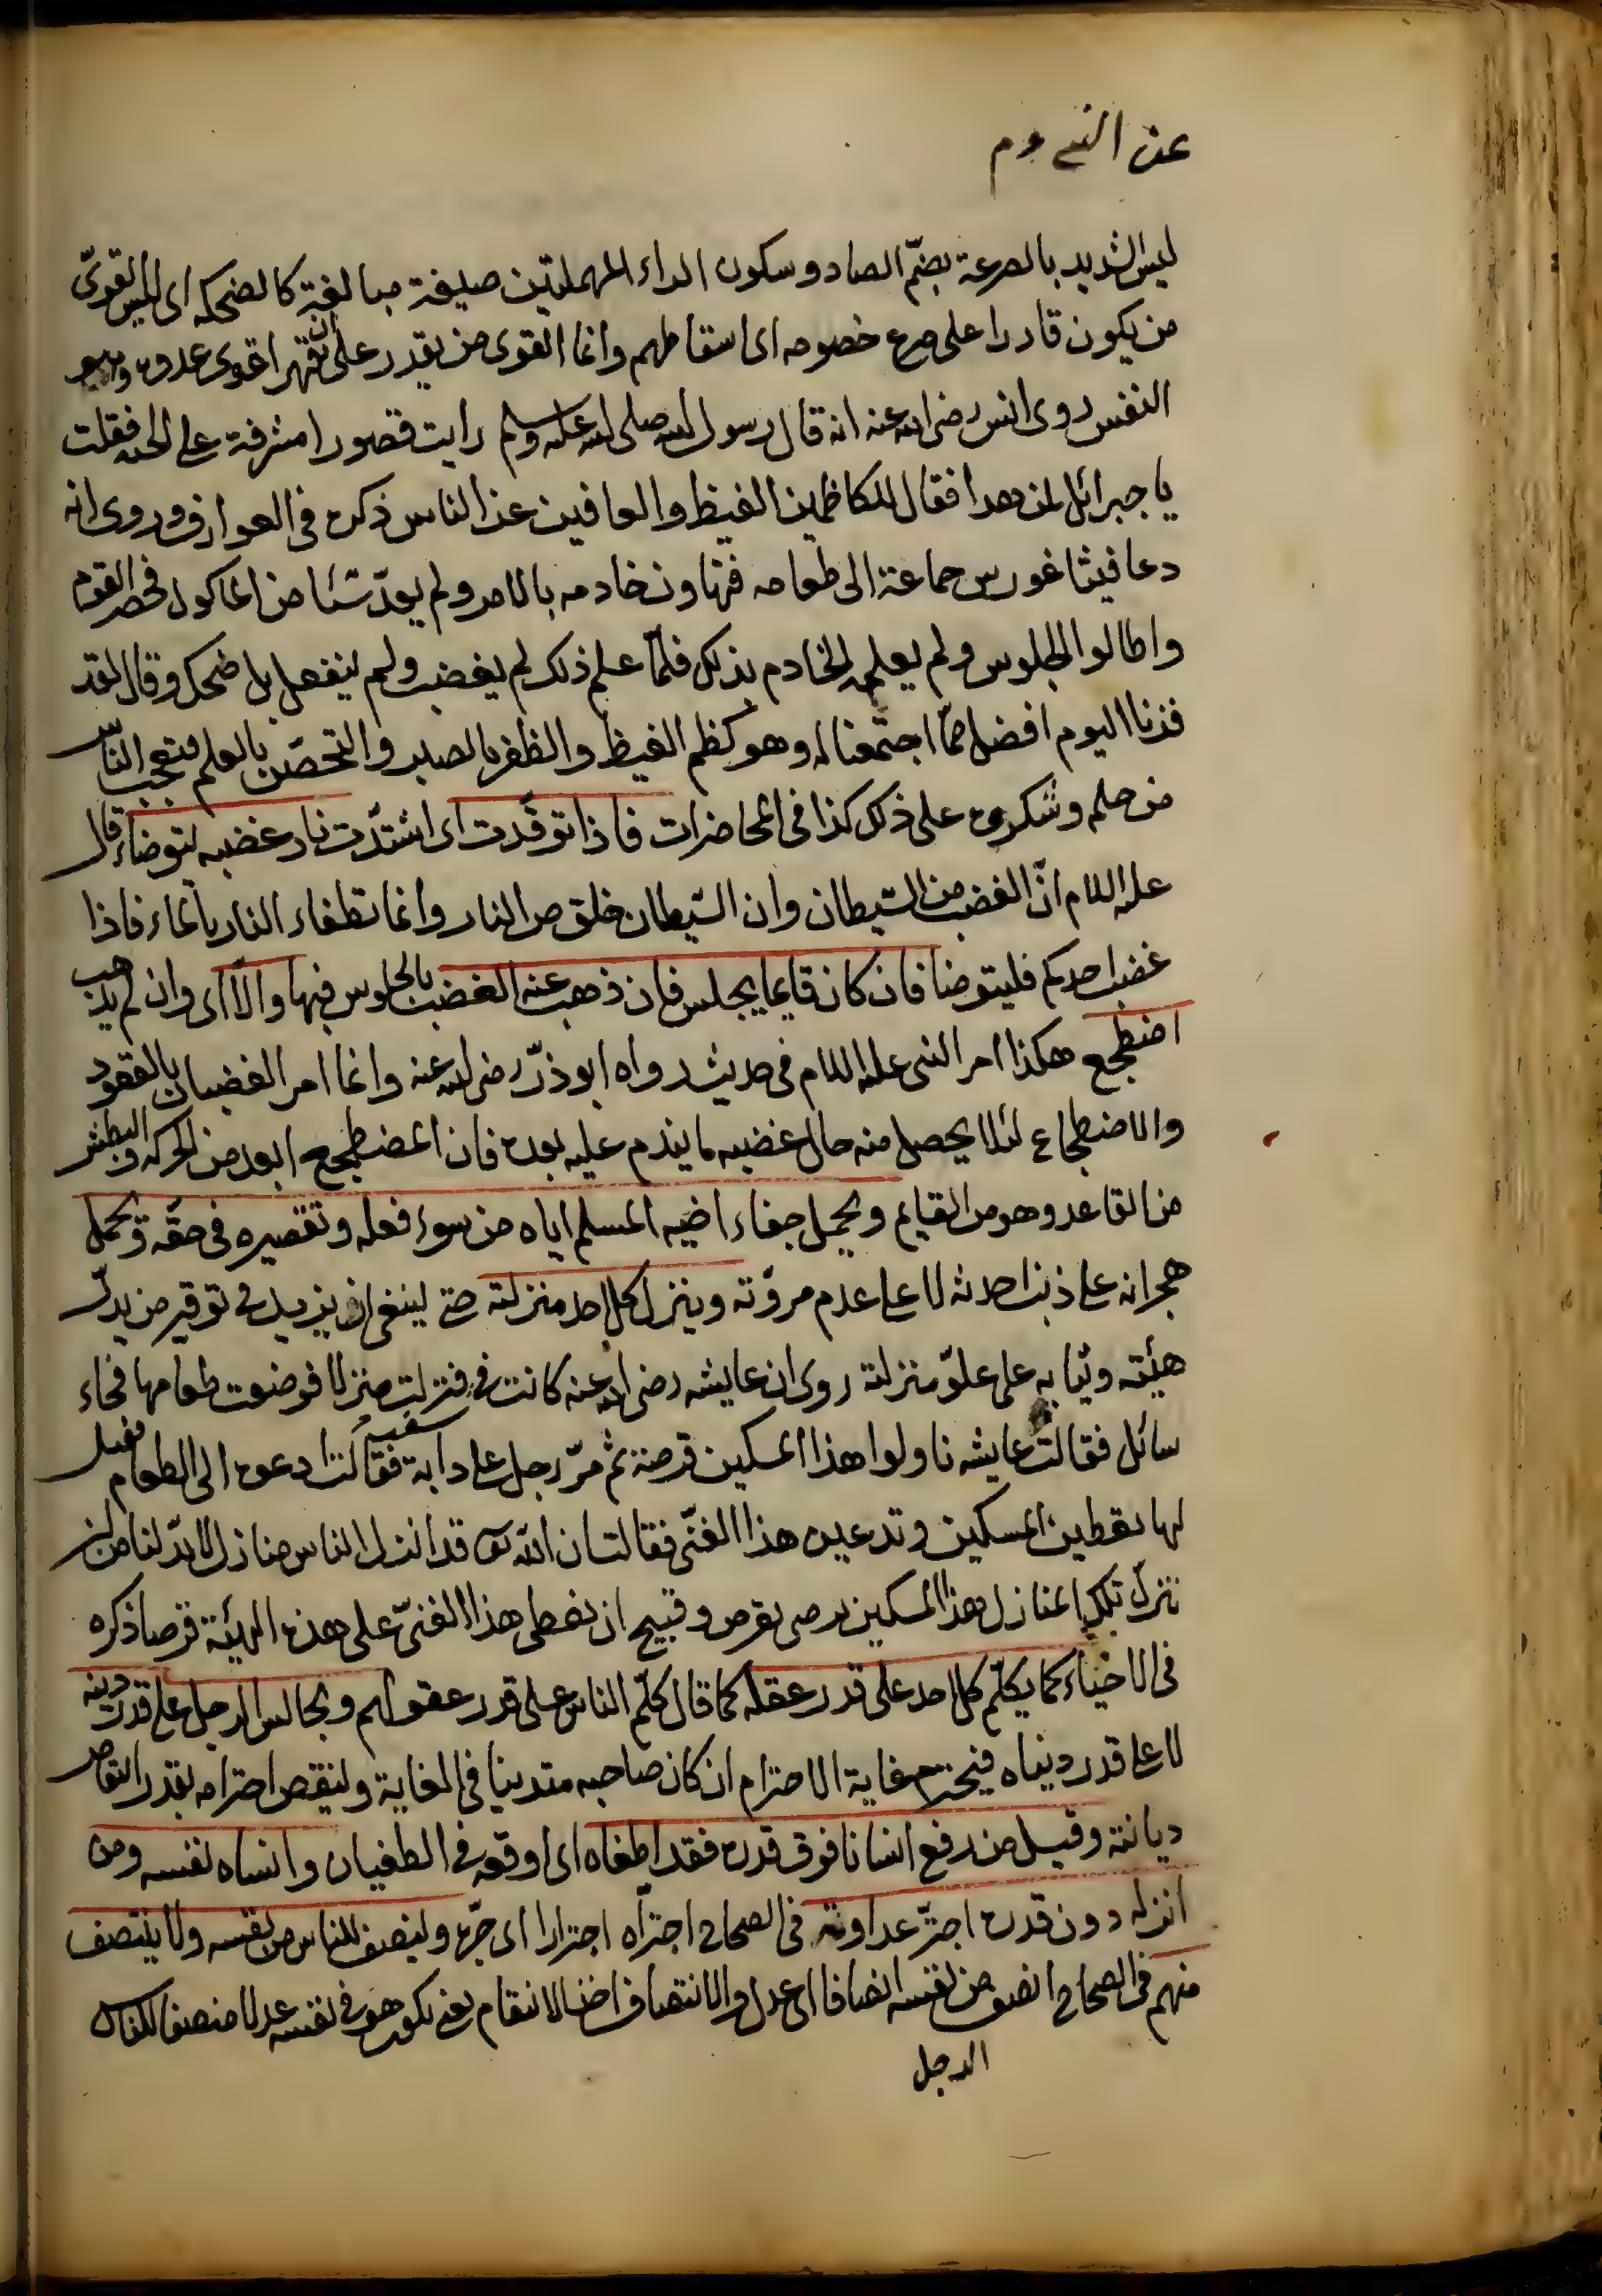 ليس الشديد بالصرعة بضمّ الصاد وسكون الراء المهملتين صيغة مبالغة كالضحكة اى ليس القوىّ
من يكون قادرا على صرع خصومه اى اسقاطهم وانما القوى من يقدر على ان يقهر اقوى عدوه وهو
النفس روى انس رضى الله عنه انه قال رسول الله صلى الله عليه وسلم رايت قصورا مشرفة على الجنة فقلت
يا جبرائل لمن هذا فقال للكاظمين الغيظ والعافين عن الناس ذكره فى العوارف وروى انه
دعا فيثاغورس جماعة الى طعامه فتهاون خادمه بالامر ولم يعدّ شئا من الماكول فحضر القوم
واطالوا الجلوس ولم يعلمه الخادم بذلك فلمّا علم ذلك لم يغضب ولم ينفعل بل ضحك وقال لقد
فزنا اليوم افضل ممّا اجتمعنا له وهو كظم الغيظ والظفر بالصبر والتحصّن بالعلم فتعجب الناس
من حلمه وشكره على ذلك كذا فى المحاضرات فاذا توقّدت اى اشتدّت نار غضبه يتوضاء قال
عليه السلام انّ الغضب من الشيطان وان الشيطان خلق من النار وانما تطفاء النار بالماء فاذا
غضب احدكم فليتوضا فان كان قايما يجلس فان ذهب عنه الغضب بالجلوس فبها والّا اى وان لم يذهب
اضطجع هكذا امر النبى عليه السلام فى حديث رواه ابوذرّ رضى الله عنه وانما امر الغضبان بالقعود
والاضطجاع لئلا يحصل منه حال غضبه ما يندم عليه بعده فان المضطجع ابعد من الحركة والبطش
من القاعد وهو من القايم ويحمل جفاء اخيه المسلم اياه من سوء فعله وتقصيره فى حقّه ويحمل
هجرانه على ذنب احدثه لا على عدم مروّته وينزل كل احد منزلته حتى ينبغى ان يزيد فى توقير من يدلّ
هيئته وثيابه على علوّ منزلته روى ان عايشه رضى الله عنه كانت فى سفر فنزلت منزلا فوضعت طعامها فجاء
سائل فقالت عايشه ناولوا هذا المسكين قرصة ثم مرّ رجل على دابة فقالت ادعوه الى الطعام فقيل
لها تعطين المسكين وتدعين هذا الغنّى فقالت ان الله تعا قد انزل الناس منازل لا بدّ لنا من ان
ننزل تلك المنازل هذا المسكين يرضى بقرص وقبيح ان نعطى هذا الغنىّ على هذه الهيئة قرصا ذكره
فى الاحياء كما يكلّم كل احد على قدر عقله كما قال كلّم الناس على قدر عقولهم ويجالس الرجل على قدر دينه
لا على قدر دنياه فيحترم غاية الاحترام ان كان صاحبه متدينا فى الغاية ولينقص احترامه بقدر انتقاص
ديانته وقيل من رفع انسانا فوق قدره فقد اطغاه اى اوقعه فى الطغيان وانساه نفسه ومن
انزله دون قدره اجترّ عداوته فى الصحاح اجترّه اجترارا اى جرّه ولينصف للناس من نفسه ولا ينتصف
منهم فى الصحاح انصف من نفسه انصافا اى عدل والانتصاف اخذ الانتقام يعنى يكون هو فى نفسه عدلا منصفا
الرجل